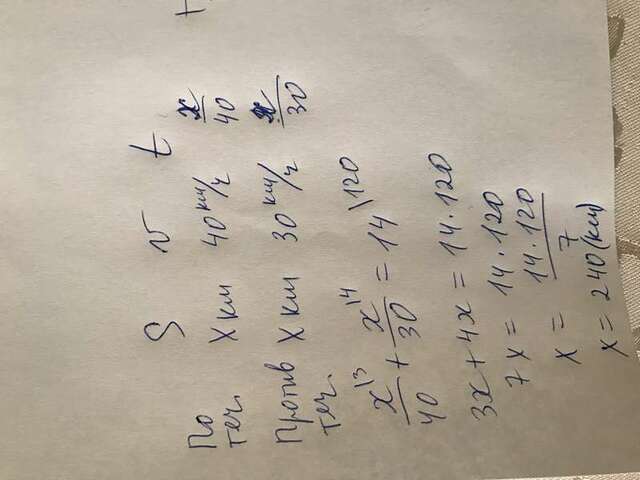 S v t
По теч. X км 40 км/ч x/40
Против теч. X км 30 км/ч x/30
x\3/40 + x\4/30 = 14\120
3x + 4x = 14·120
7x = 14·120
x = 14·120/7
x = 240 (км)